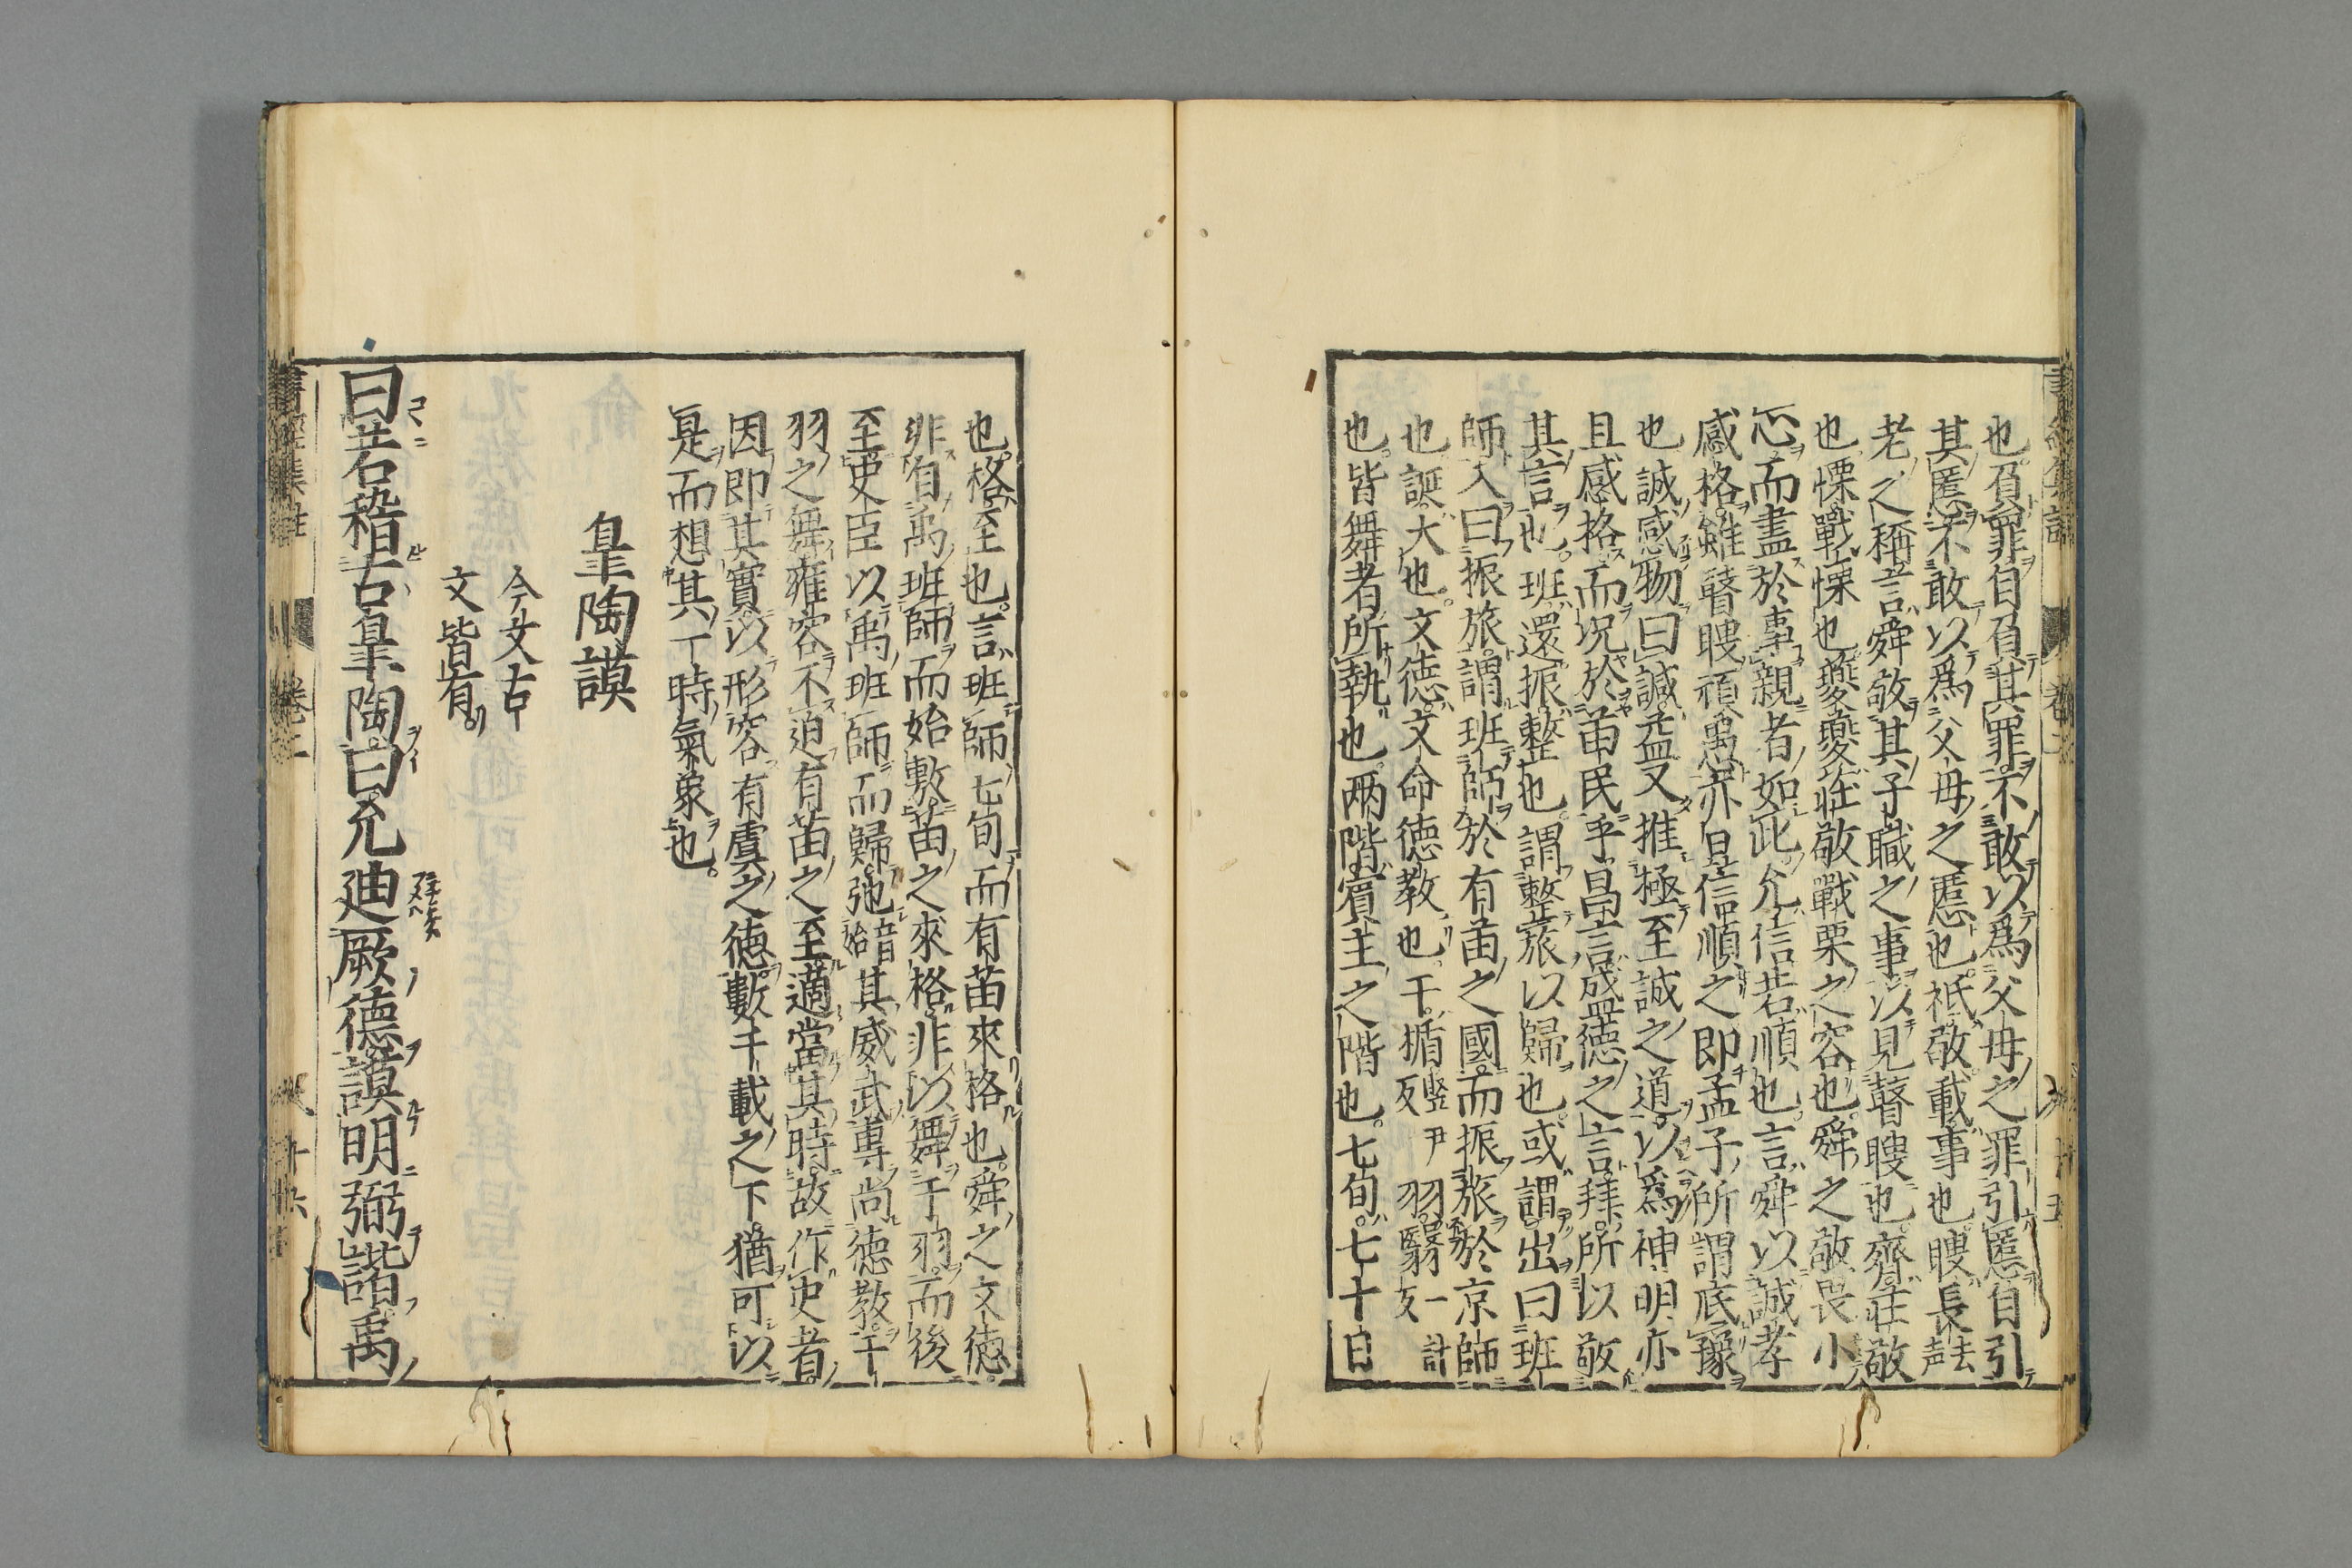 也負罪自負其罪不敢以爲父母之罪引慝自引
其慝不敢以爲父母之慝也祗敬載事也瞍長去声
老之稱言舜敬其子職之事以見瞽瞍也齊莊敬
也慄戰慄也夔夔莊敬戰栗之容也舜之敬畏小
心而盡於事親者如此允信若順也言舜以誠孝
感格雖瞽瞍頑愚亦且信順之即孟子所謂底豫
也誠感物曰諴益又推極至誠之道以爲神明亦
且感格而况於苗民乎昌言盛徳之言拜所以敬
其言也班還振整也謂整旅以歸也或謂出曰班
師入曰振旅謂班師於有苗之國而振旅於京師
也誕大也文德文命徳教也干楯竪尹反羽翳一計反
也皆舞者所執也两階賓主之階也七旬七十日
也格至也言班師七旬而有苗來格也舜之文徳
非自禹班師而始敷苗之來格非以舞干羽而後
至史臣以禹班師而歸弛音始其威武專尚徳教干
羽之舞雍容不迫有苗之至適當其時故作史者
因即其實以形容有虞之徳數千載之下猶可以
是而想其一時氣象也
皐陶謨
今文古
文皆有
曰若稽古皐陶曰允迪厥德謨明弼諧禹